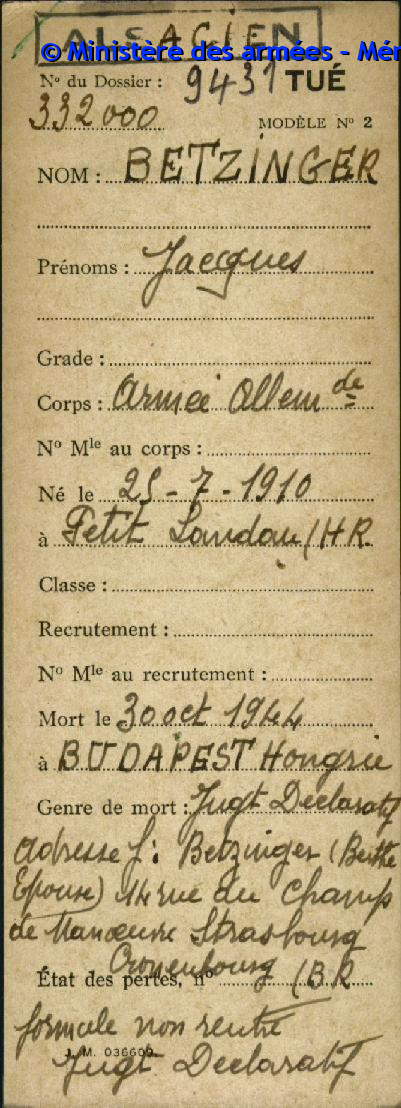 ALSACIEN
© Ministère des armées - Mém
N° du Dossier : 9431 TUÉ
332000
MODÈLE N° 2
NOM : BETZINGER
Prénoms : Jacques
Grade :
Corps : Armée Allem de
N° Mle au corps :
Né le 25-7-1910
à Petit Landau (HR
Classe :
Recrutement :
N° Mle au recrutement :
Mort le 30 oct 1944
à BUDAPEST Hongrie
Genre de mort : Jugt Déclaratif
adresse f: Betzinger (Berthe
Epouse) 14 rue du Champ
de Manoeuvre Strasbourg
Cronenbourg (BR
État des pertes, n°
formule non rentré
J. M. 036609.
Jugt Déclaratif